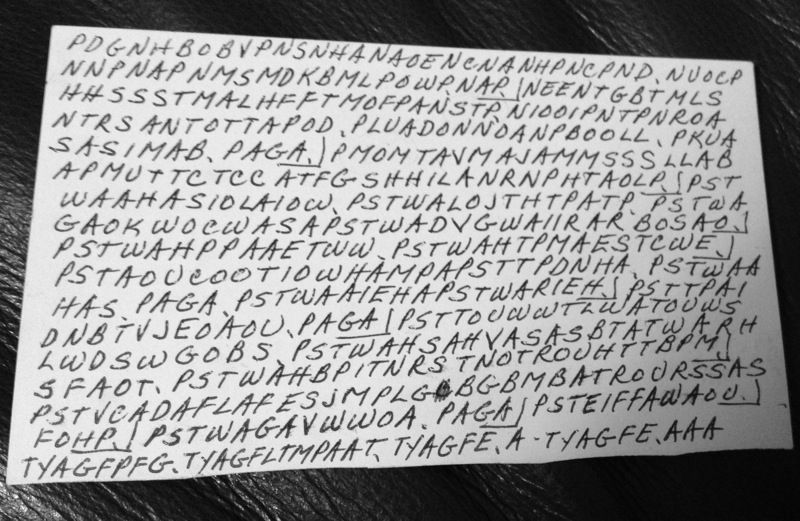 PDGNHBOBVPNSNHANAOENCNANHPNCPND. NUOCP
NNPNAPNMSMDKBMLPOWPNAP.|NEENTGBTMLS
HHSSSTMALHFFTMOFPANSTP. NIOOIPNTPNROA
NTRSANTOTTAPOD. PLUADONNOANPBOOLL. PKUA
SASIMAB. PAGA.|PMOMTAVMAJAMMSSSLLAB
APMUTTCTCC ATFGSHHILANRNPHTAOLP.|PST
WAAHASIOLAIOW. PSTWALOJTHTPATP. PSTWA
GAOKWOCWASAPSTWADVGWAIIRAR BOSAO.|
PSTWAHPPAAETWW. PSTWAHTPMAESTCWE.|
PSTAOUCOOTIOWHAMPAPSTTPDNHA. PSTWAA
HAS. PAGA. PSTWAAIEHAPSTWARIEH.|PSTTPAI
DNBTVJEOAOU. PAGA|PSTTOUWWTLWATOUWS
LWDSWGOBS. PSTWAHSAHVASASBTATWARH
SFAOT. PSTWAHBPITNRSTNOTROUHTTBPM|
PSTVCADAFLAFESJMPLGBGBMBATROURSSAS
FOHP.|PSTWAGAVWWOA. PAGA|PSTEIFFAWAOU.|
TYAGFPFG. TYAGFLTMPAAT. TYAGFE. A-TYAGFE. AAA